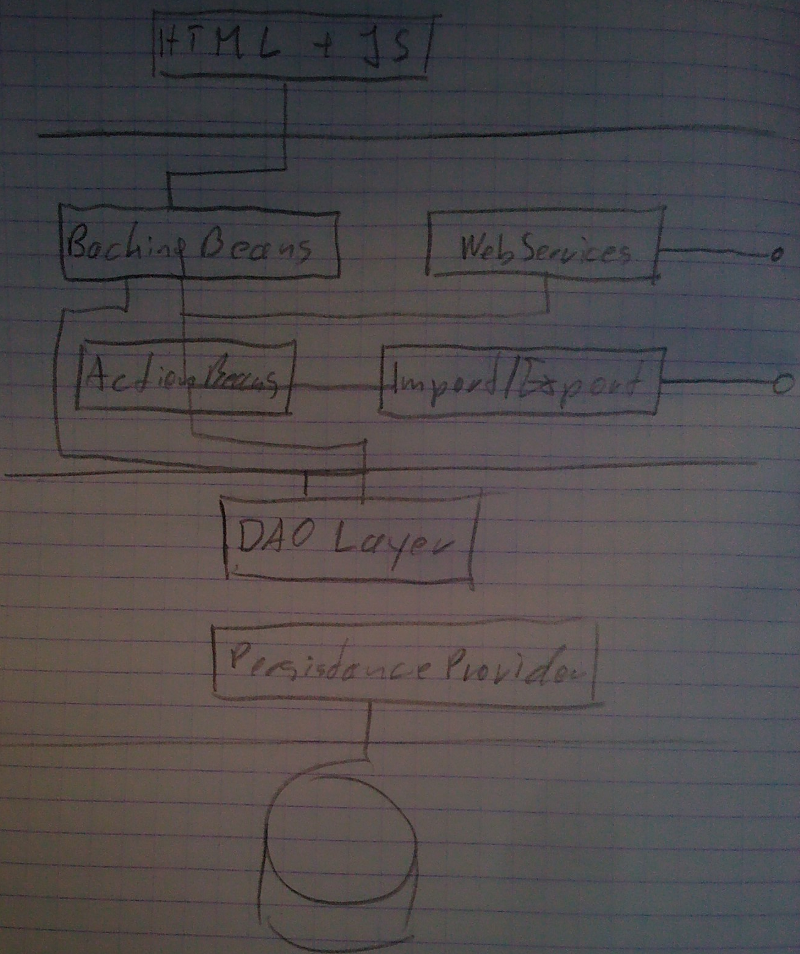 HTML + JS
Backing Beans
WebServices
Action Beans
Import/Export
DAO Layer
Persistance Provider